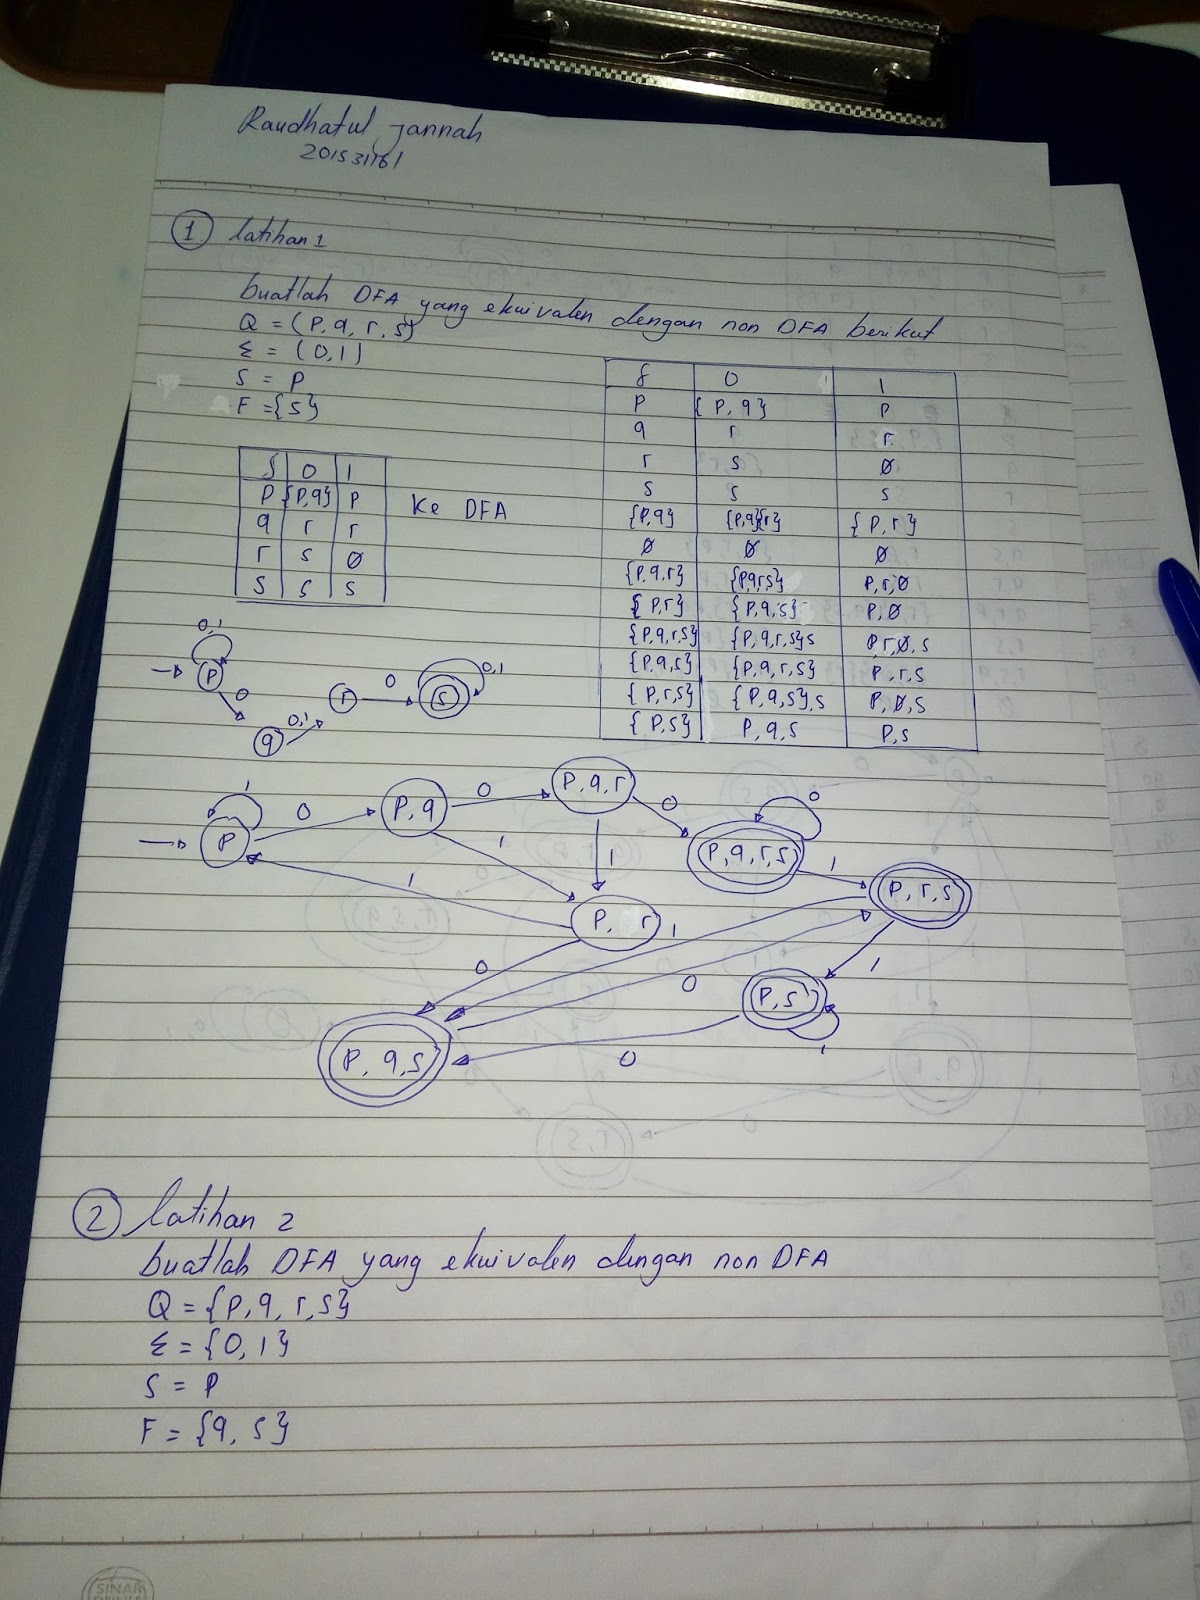 Raudhatul Jannah
201531161
1 latihan 1
buatlah DFA yang ekuivalen dengan non DFA berikut
Q = (P, q, r, s}
Σ = (0,1)
S = P
F = {s}
δ 0 1
P {P,q} P
q r r
r s Ø
s s s
Ke DFA
δ 0 1
P { P, q} P
q r r
r s Ø
s s s
{P,q} {P,q}{r} { P, r }
Ø Ø Ø
{P,q,r} {P,q,r,s} P,r,Ø
{ P,r} {P,q,s} P,Ø
{P,q,r,s} {P,q,r,s}s P,r,Ø,s
{P,q,s} {P,q,r,s} P,r,s
{P,r,s} {P,q,s},s P,Ø,s
{P,s} P,q,s P,s
0,1
P 0
q 0,1
r 0 s 0,1
1
P 0 P,q 0 P,q,r 0 P,q,r,s 0
1 1 1 1
P, r P,r,s
0 1 0 1
P,s 1
P, q,s 0
2 latihan 2
buatlah DFA yang ekuivalen dengan non DFA
Q = {P,q,r,s}
Σ = {0,1}
S = P
F = {q, s}
SINAR